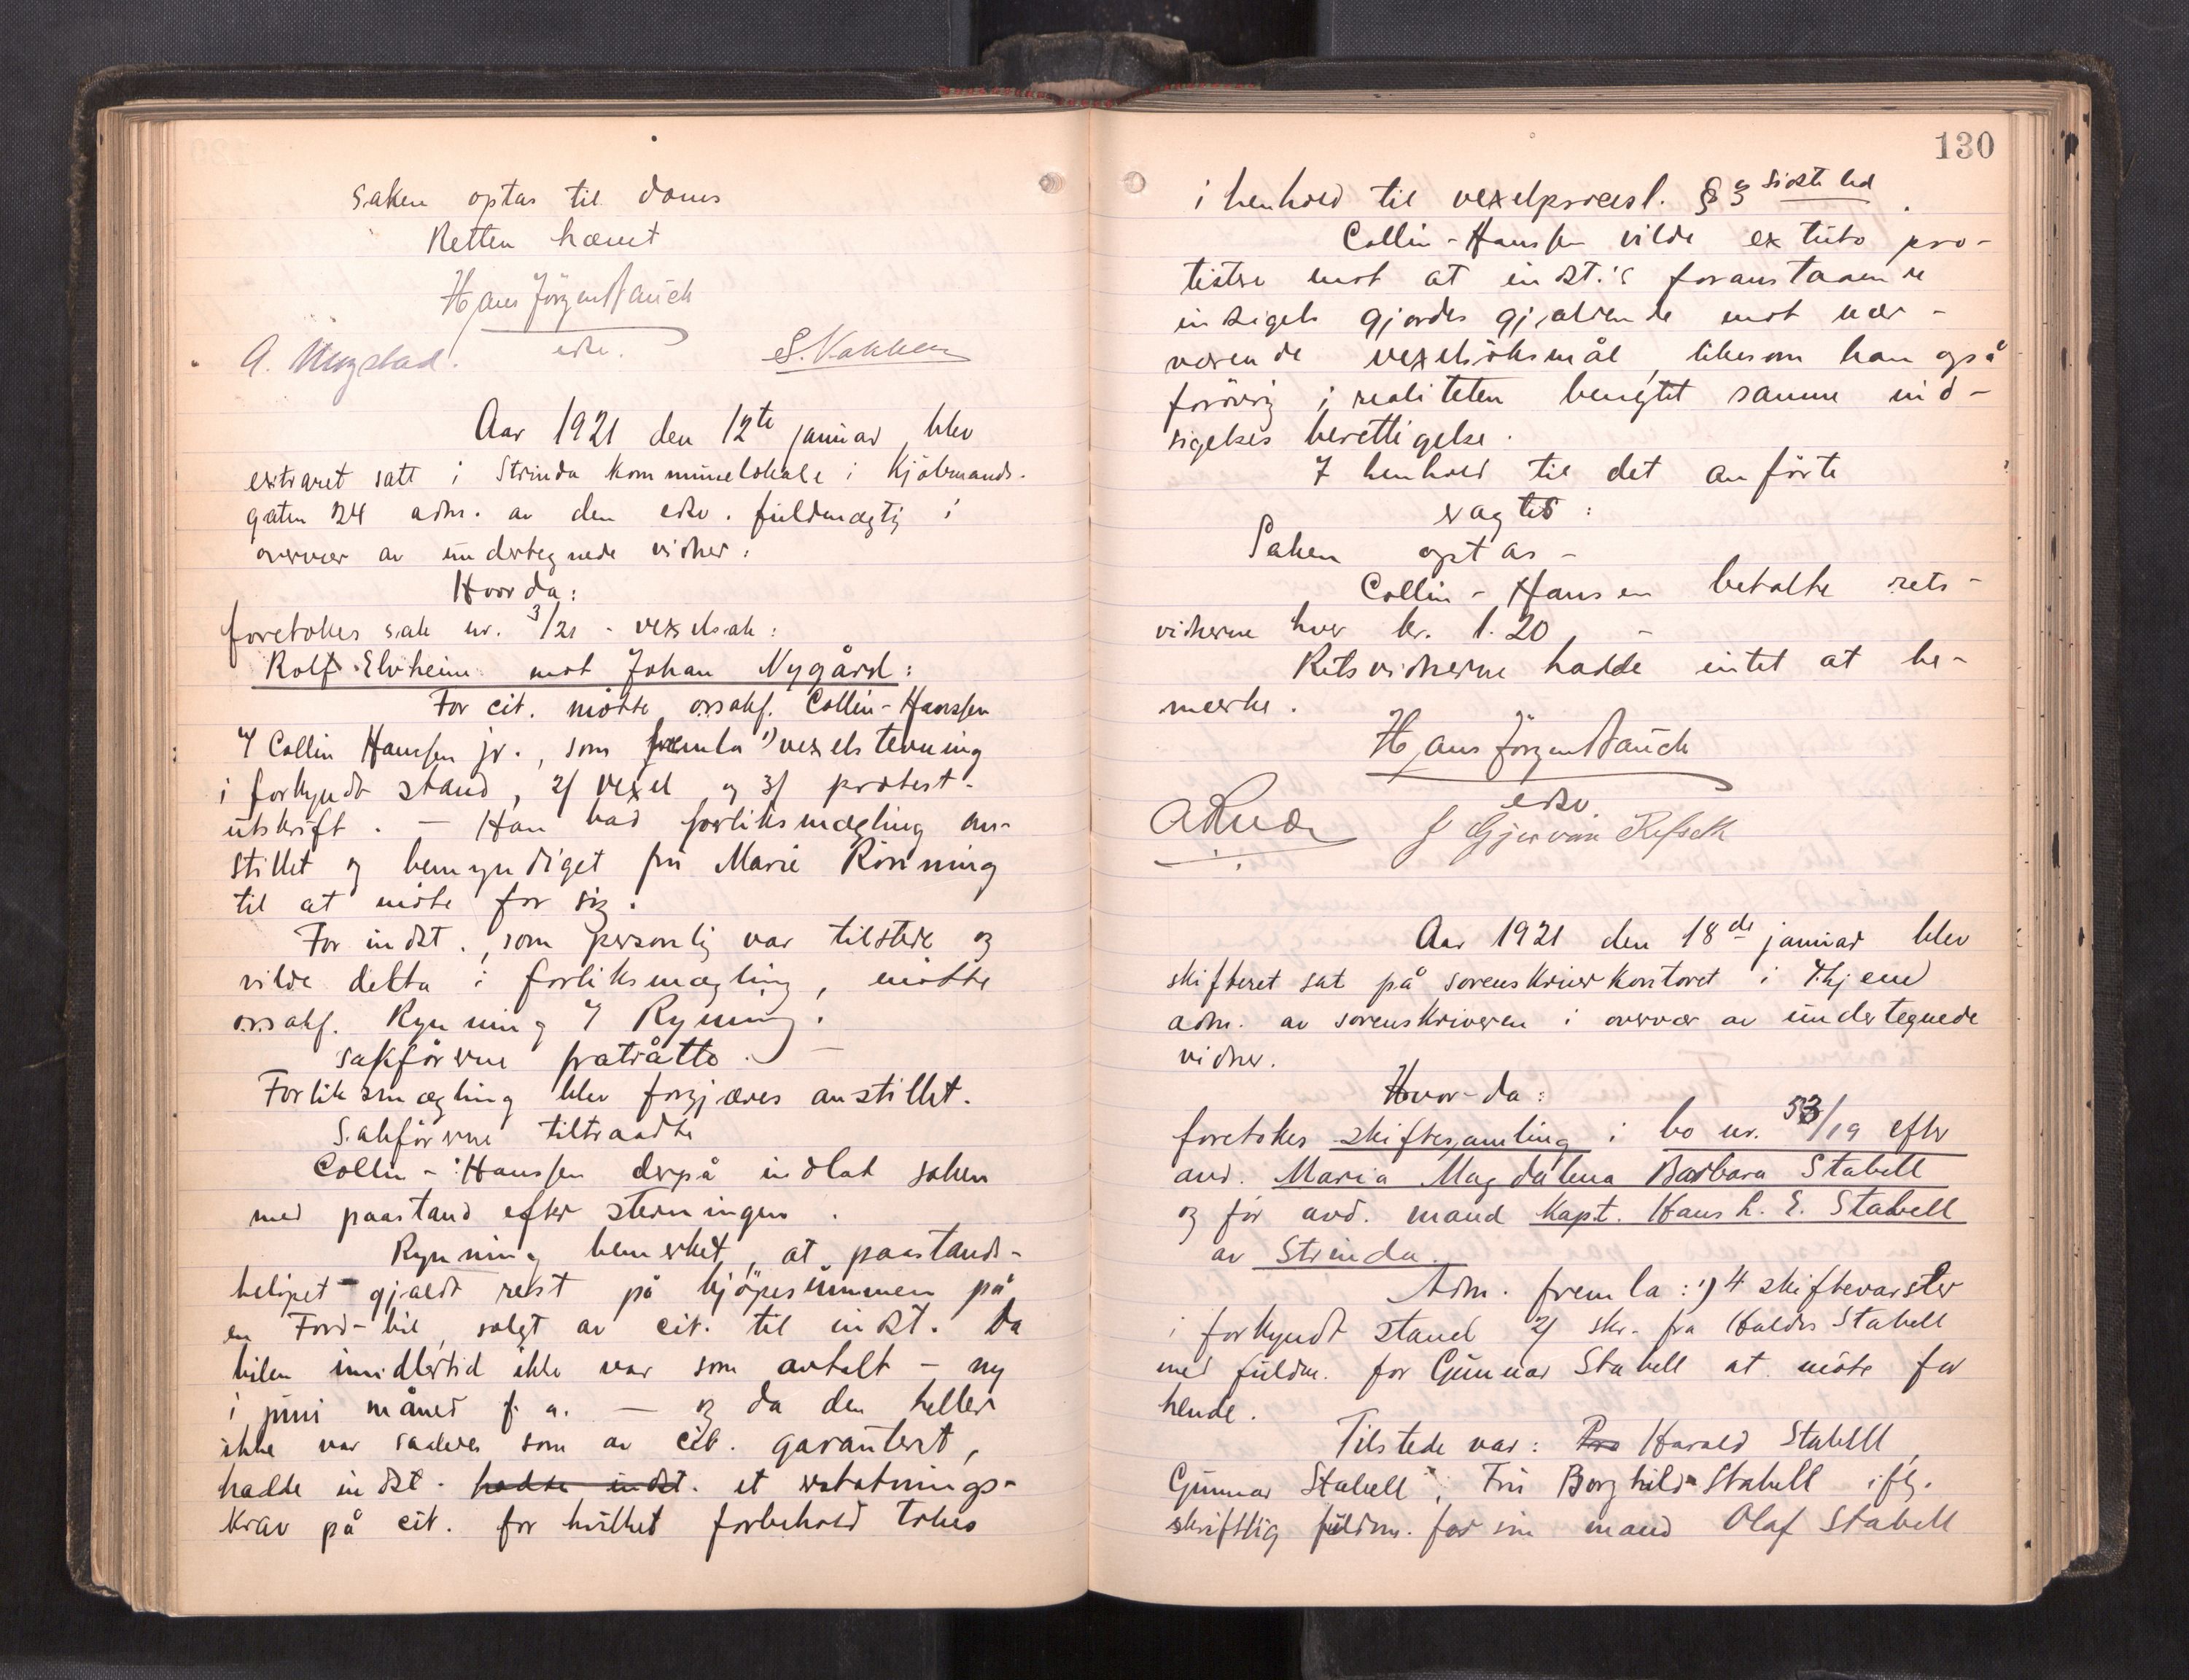 Saken optas til doms
Retten hævet
Hans Jörgen Hauch
edsv.
S. Vakken
Aar 1921 den 12te januar blev
extraret satt i Strinda kommunelokale i Kjöbmands-
gaten 24 adm. av den edsv. fuldmægtig i
overvær av undertegnede vidner:
Hvor da:
foretokes sak nr. 3/21 - vexelsak:
Rolf Elvheim mot Johan Nygård:
For cit. møtte orsakf. Collin-Hanssen
v/ Collin Hanssen jr., som fremla 1) vexelstevning
i forkyndt stand, 2/ vexel og 3/ protest-
utskrift. - Han bad forliksmægling an-
stillet og bemyndiget fru Marie Rönning
til at möte for sig.
For indst., som personlig var tilstede og
vilde delta i forliksmægling, mötte
orsakf. Rynning v/ Rynning.
Sakförerne fratraatte. -
Forliksmægling blev forgjæves anstillet.
Sakförerne tiltraadte
Collin-Hanssen derpå indlot saken
med paastand efter stevningen.
Rynning bemerket, at paastands-
belöpet gjaldt rest på kjöpesummen på
en Ford-bil, solgt av cit. til indst. Da
bilen imidlertid ikke var som avtalt - ny
i juni måned f. a. - og da den heller
ikke var saadan som av cit. garantert,
hadde indst. hadde indst. et erstatnings-
krav på cit. for hvilket forbehold tokes
130
i henhold til vexelprocesl. § 3 siste led.
Collin-Hanssen vilde ex tuto pro-
testere mot at indst.'s foranstaaende
indsigelse gjordes gjældende mot nær-
værende vexelsöksmål, likesom han også
forövrig i realiteten benegtet samme ind-
sigelses berettigelse.
I henhold til det anförte
eragtes:
Saken optas -
Collin-Hansen betalte rets-
vidnerne hver kr. 1.20. -
Retsvidnerne hadde intet at be-
merke.
Hans Jörgen Hauch
edsv.
Aar 1921 den 18de januar blev
skifteret sat på sorenskriverkontoret i Thjem
adm. av sorenskriveren i overvær av undertegnede
vidner.
Hvor-da:
foretokes skiftesamling i bo nr. 53/19 efter
avd. Maria Magdalena Barbara Stabell
og før avd. mand Kapt. Hans L. E. Stabell
av Strinda.
Adm. fremla: 1) 4 skiftevarsler
i forkyndt stand 2/ skr. fra Haldis Stabell
med fuldm. for Gunnar Stabell at möte for
hende.
Tilstede var: Pro Harald Stabell,
Gunnar Stabell, Fru Borghild Stabell ifg.
skriftlig fuldm. for sin mand Olaf Stabell